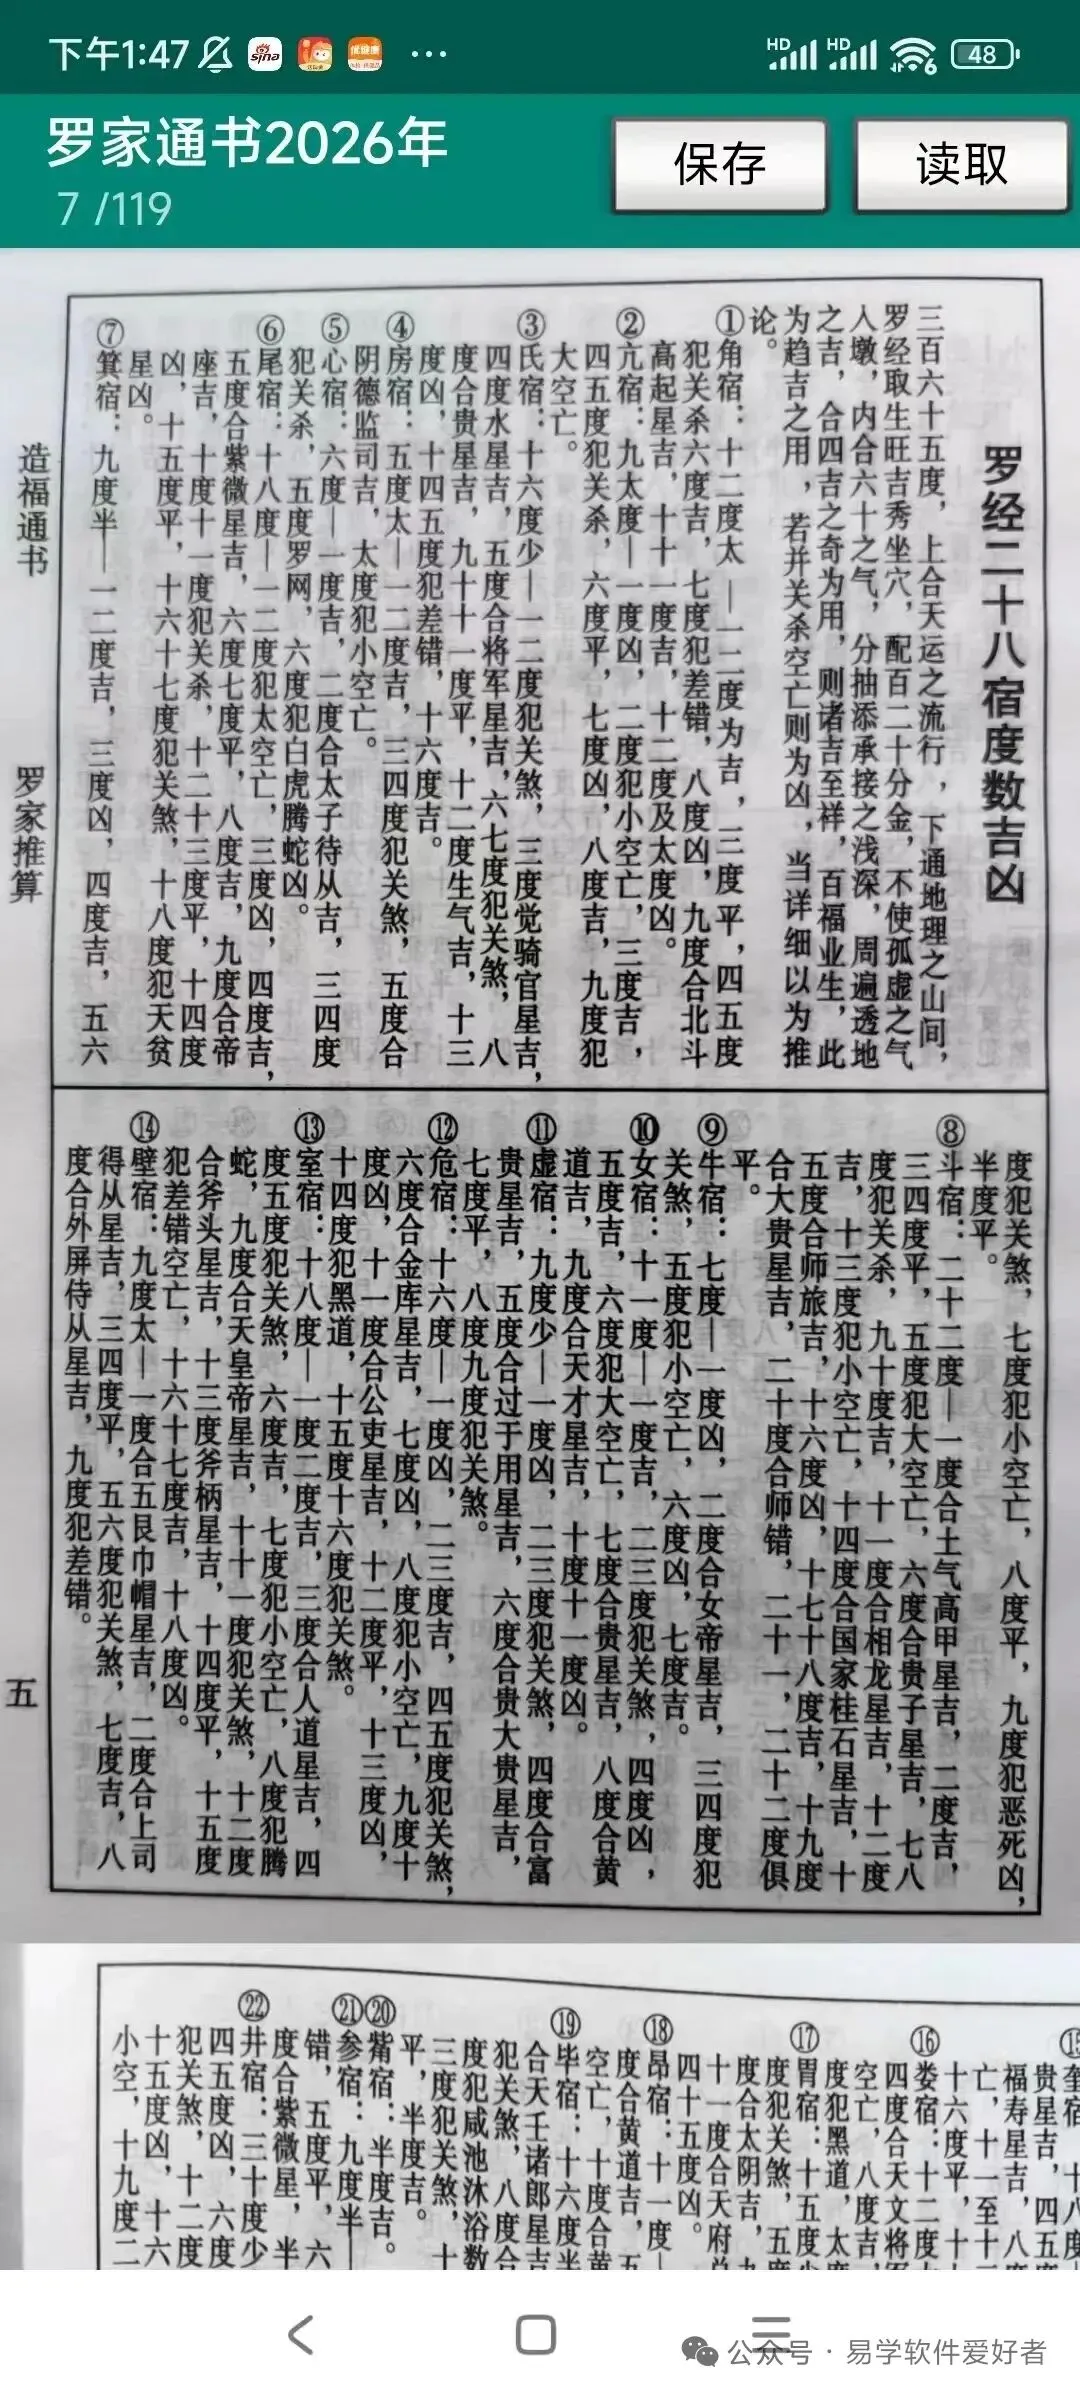 下午1:47
sina
HD
HD
6
48
罗家通书2026年
7 /119
保存
读取
罗经二十八宿度数吉凶
三百六十五度，上合天运之流行，下通地理之山间，
罗经取生旺吉秀坐穴，配百二十分金，不使孤虚之气
入墩，内合六十之气，分抽添承接之浅深，周遍透地
之吉，合四吉之奇为用，则诸吉至祥，百福业生，此
为趋吉之用，若并关杀空亡则为凶，当详细以为推
论。
①角宿：十二度太—一二度为吉，三度平，四五度
犯关杀六度吉，七度犯差错，八度凶，九度合北斗
高起星吉，十十一度吉，十二度及太度凶。
②亢宿：九太度—一度凶，二度犯小空亡，三度吉，
四五度犯关杀，六度平，七度凶，八度吉，九度犯
大空亡。
③氐宿：十六度少—一二度犯关煞，三度觉骑官星吉，
四度水星吉，五度合将军星吉，六七度犯关煞，八
度合贵星吉，九十十一度平，十二度生气吉，十三
度凶，十四五度犯差错，十六度吉。
④房宿：五度太—一二度吉，三四度犯关煞，五度合
阴德监司吉，太度犯小空亡。
⑤心宿：六度—一度吉，二度合太子待从吉，三四度
犯关杀，五度罗网，六度犯白虎腾蛇凶。
⑥尾宿：十八度—一二度犯太空亡，三度凶，四度吉，
五度合紫微星吉，六度七度平，八度吉，九度合帝
座吉，十度十一度犯关杀，十二十三度平，十四度
凶，十五度平，十六十七度犯关煞，十八度犯天贫
星凶。
⑦箕宿：九度半—一二度吉，三度凶，四度吉，五六
造福通书
罗家推算
五
度犯关煞，七度犯小空亡，八度平，九度犯恶死凶，
半度平。
⑧斗宿：二十二度—一度合土气高甲星吉，二度吉，
三四度平，五度犯大空亡，六度合贵子星吉，七八
度犯关杀，九十度吉，十一度合相龙星吉，十二度
吉，十三度犯小空亡，十四度合国家桂石星吉，十
五度合师旅吉，十六度凶，十七十八度吉，十九度
合大贵星吉，二十度合师错，二十一，二十二度俱
平。
⑨牛宿：七度—一度凶，二度合女帝星吉，三四度犯
关煞，五度犯小空亡，六度凶，七度吉。
⑩女宿：十一度—一度吉，二三度犯关煞，四度凶，
五度吉，六度犯大空亡，七度合贵星吉，八度合黄
道吉，九度合天才星吉，十度十一度凶。
⑪虚宿：九度少—一度凶，二三度犯关煞，四度合富
贵星吉，五度合过于用星吉，六度合贵大贵星吉，
七度平，八度九度犯关煞。
⑫危宿：十六度—一度凶，二三度吉，四五度犯关煞，
六度合金库星吉，七度凶，八度犯小空亡，九度十
度凶，十一度合公吏星吉，十二度平，十三度凶，
十四度犯黑道，十五度十六度犯关煞。
⑬室宿：十八度—一度二度吉，三度合人道星吉，四
度五度犯关煞，六度吉，七度犯小空亡，八度犯腾
蛇，九度合天皇帝星吉，十十一度犯关煞，十二度
合斧头星吉，十三度斧柄星吉，十四度平，十五度
犯差错空亡，十六十七度吉，十八度凶。
⑭壁宿：九度太—一度合五艮巾帽星吉，二度合上司
得从星吉，三四度平，五六度犯关煞，七度吉，八
度合外屏侍从星吉，九度犯差错。
⑮奎宿：十八度
贵星吉，四五度
福寿星吉，八度
亡，十一至十三
十六度平，十
⑯娄宿：十二度
四度合天文将
空亡，八度吉，
度犯黑道，太度
⑰胃宿：十五度少
度犯关煞，五度
度合太阴吉，九
十一度合天府
四十五度凶。
⑱昴宿：十一度—
度合黄道吉，五
空亡，十度合黄
⑲毕宿：十六度半
合天壬诸郎星吉
犯关煞，八度合
度犯咸池沐浴数
三度犯关煞，十
平，半度吉。
⑳觜宿：半度吉。
㉑参宿：九度半—
错，五度平，六
度合紫微星，半
㉒井宿：三十度少
四五度凶，六度
犯关煞，十二度
十五度凶，十六
小空，十九度二
公众号 · 易学软件爱好者